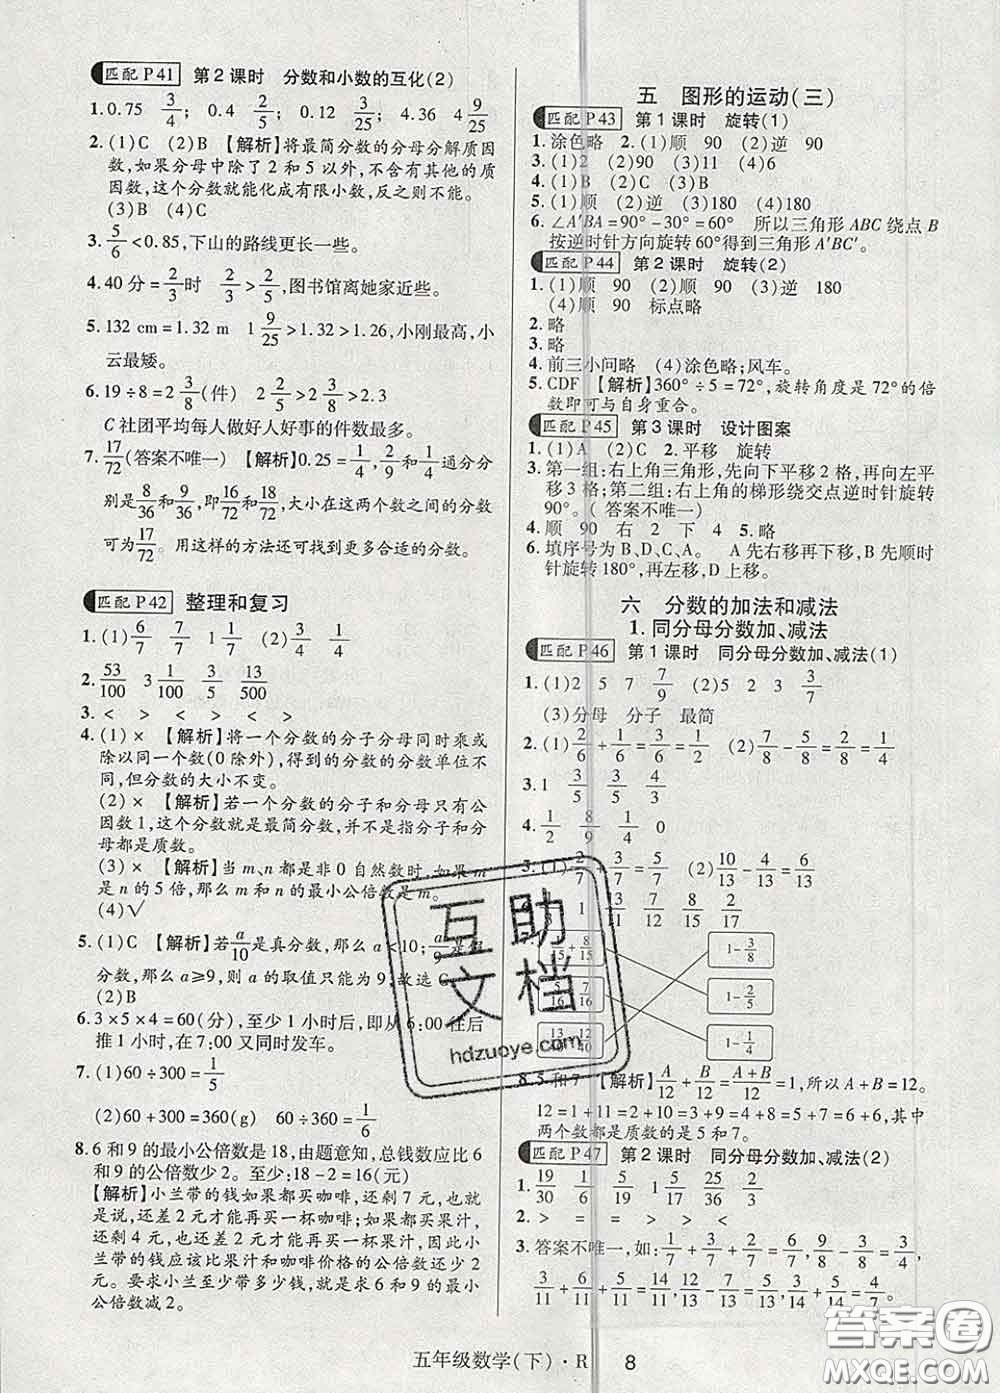 匹配 P41 第2课时 分数和小数的互化(2)
1. 0.75 3/4; 0.4 2/5; 0.12 3/25; 4.36 4 9/25
2. (1)C (2)B 【解析】将最简分数的分母分解质因
数,如果分母中除了2和5以外,不含有其他的质
因数,这个分数就能化成有限小数,反之则不能。
(3)B (4)C
3. 5/6<0.85,下山的路线更长一些。
4. 40分=2/3时 2/3>2/5,图书馆离她家近些。
5. 132 cm=1.32 m 1 9/25>1.32>1.26,小刚最高,小
云最矮。
6. 19÷8=2 3/8(件) 2 2/5>2 3/8>2.3
C社团平均每人做好人好事的件数最多。
7. 17/72(答案不唯一) 【解析】0.25=1/4,2/9和1/4通分分
别是8/36和9/36,即16/72和18/72,大小在这两个数之间的分数
可为17/72。用这样的方法还可找到更多合适的分数。
匹配 P42 整理和复习
1. (1)6/7 7/7 1 1/7 (2)3/4 1/4
2. 53/100 3 1/100 1/5 13/500
3. < < > < > <
4. (1)× 【解析】将一个分数的分子分母同时乘或
除以同一个数(0除外),得到的分数的分数单位不
同,但分数的大小不变。
(2)× 【解析】若一个分数的分子和分母只有公
因数1,这个分数就是最简分数,并不是指分子和分
母都是质数。
(3)× 【解析】当m、n都是非0自然数时,如果m
是n的5倍,那么m和n的最小公倍数是m。
(4)√
5. (1)C 【解析】若a/10是真分数,那么a<10;a/9是
分数,那么a≥9,则a的取值只能为9,故选C
(2)B
6. 3×5×4=60(分),至少1小时后,即从6:00往后
推1小时,在7:00又同时发车。
7. (1)60÷300=1/5
(2)60+300=360(g) 60÷360=1/6
8. 6和9的最小公倍数是18,由题意知,总钱数应比6
和9的公倍数少2。至少:18-2=16(元)
【解析】小兰带的钱如果都买咖啡,还剩7元,也就
是说,还差2元才能再买一杯咖啡;如果都买果汁,
还剩4元,也是还差2元才能再买一杯果汁,因此小
兰带的钱应该比果汁和咖啡价格的公倍数还少2
元。要求小兰至少带多少钱,就是求6和9的最小
公倍数减2。
五 图形的运动(三)
匹配 P43 第1课时 旋转(1)
1. 涂色略 2. (1)顺 90 (2)逆 90
3. (1)2 (2)90 (3)11 (4)6
4. (1)B (2)C (3)B
5. (1)顺 (2)逆 (3)180 (4)180
6. ∠A′BA=90°-30°=60° 所以三角形ABC绕点B
按逆时针方向旋转60°得到三角形A′BC′。
匹配 P44 第2课时 旋转(2)
1. (1)顺 90 (2)顺 90 (3)逆 180
(4)顺 90 标点略
2. 略
3. 略
4. 前三小问略 (4)涂色略;风车。
5. CDF 【解析】360°÷5=72°,旋转角度是72°的倍
数即可与自身重合。
匹配 P45 第3课时 设计图案
1. (1)A (2)C 2. 平移 旋转
3. 第一组:右上角三角形,先向下平移2格,再向左平
移3格;第二组:右上角的梯形绕交点逆时针旋转
90°。(答案不唯一)
4. 顺 90 右 2 下 4 5. 略
6. 填序号为B、D、C、A。 A先右移再下移,B先顺时
针旋转180°,再左移,D上移。
六 分数的加法和减法
1. 同分母分数加、减法
匹配 P46 第1课时 同分母分数加、减法(1)
1. (1)2 5 7 7/9 (2)5 2 3 3/7
(3)分母 分子 最简
2. (1)2/6+1/6=3/6=1/2 (2)7/8-5/8=2/8=1/4
3. 1 3/5 3/5 1/4
4. 1/2 8/9 1/4 0
2/7+3/7=5/7 (2)10/13-4/13=6/13
1 7/12 8/15 2/17
8/15 1-3/8
7/16 1-2/5
13 12 1-1/4
8. 5和7 【解析】A/12+B/12=(A+B)/12=1,所以A+B=12。
12=1+11=2+10=3+9=4+8=5+7=6+6,其中
两个数都是质数的是5和7。
匹配 P47 第2课时 同分母分数加、减法(2)
1. 19/30 1/6 5/19 1 5/8 25/36 2/3
2. > = = > < =
3. 答案不唯一,如:1/7+3/7=4/7 9/4-6/4=3/4,
3/11+11/11=14/11,12/13-5/13=7/13,4/14+1/14=5/14
互助
文档
hdzuoye.com
答案圈
MXQE.COM
五年级数学(下)·R 8